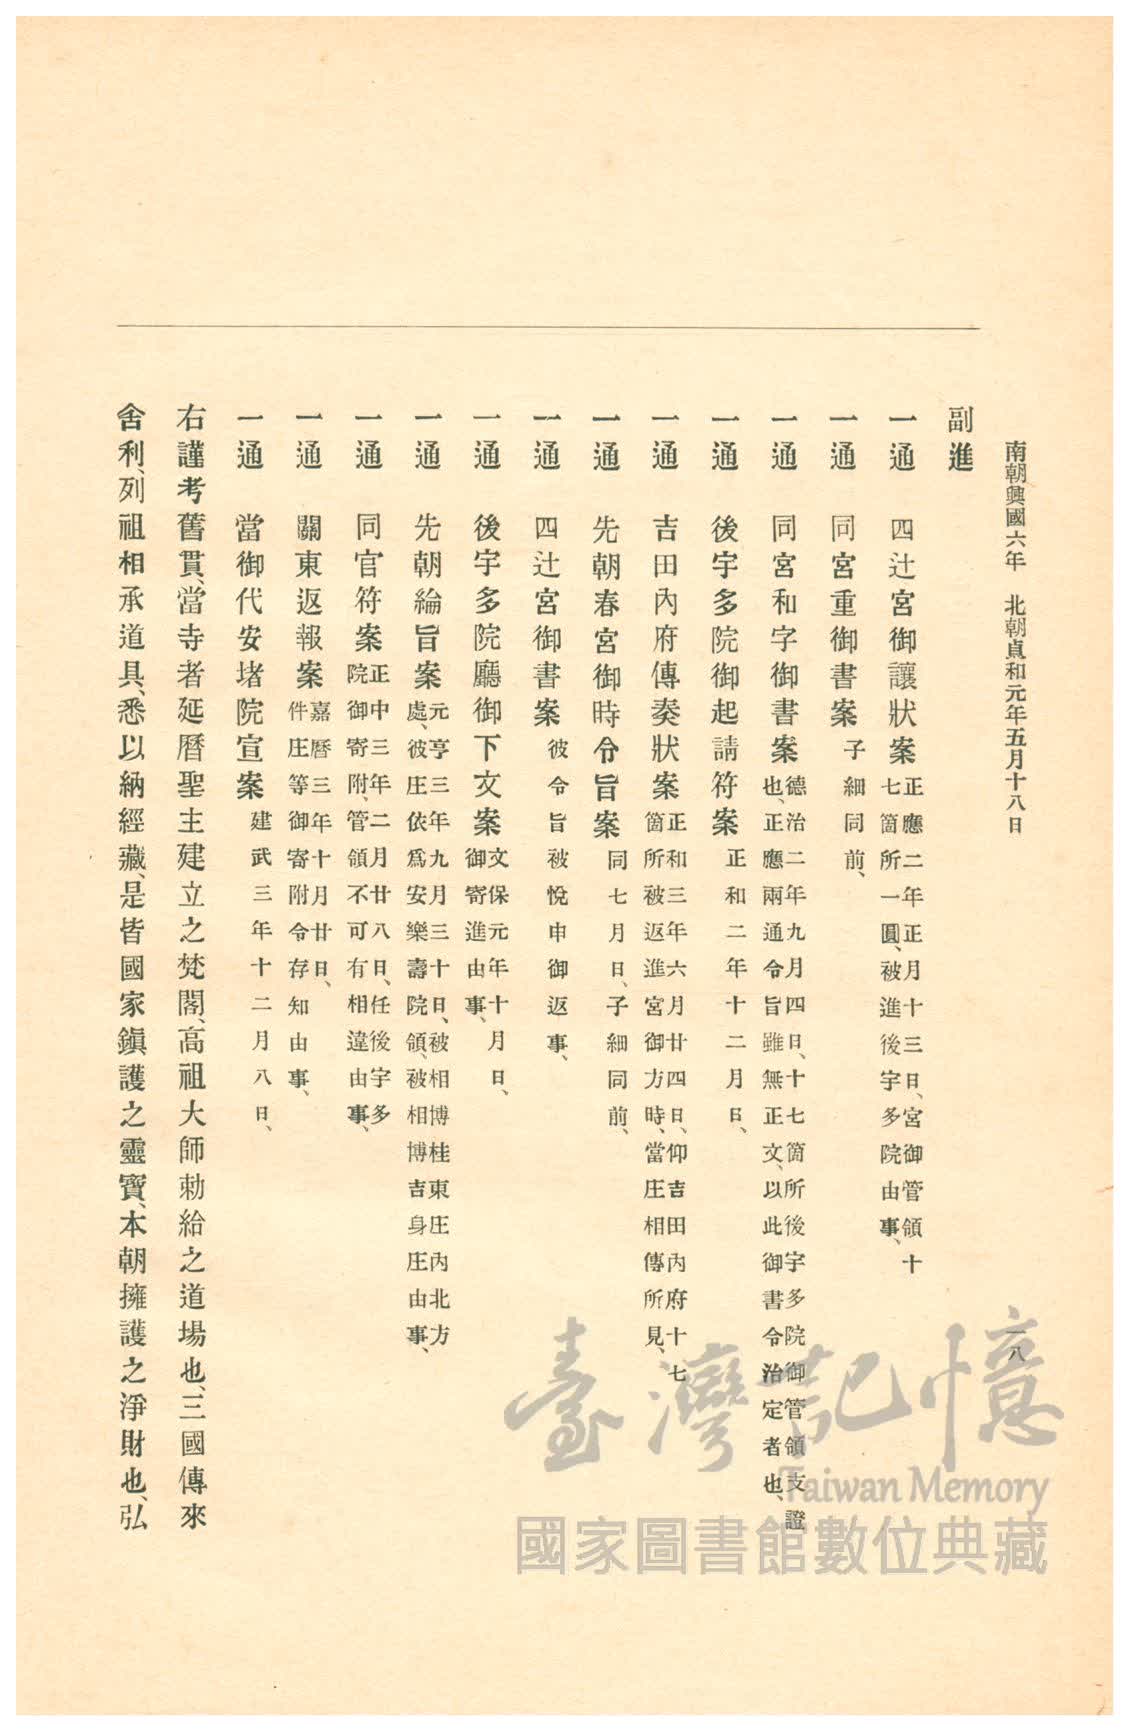 南朝興國六年　北朝貞和元年五月十八日
一八
副進
一通　四辻宮御讓狀案 正應二年正月十三日、宮御管領十
七箇所一圓、被進後宇多院由事、
一通　同宮重御書案 子細同前、
一通　同宮和字御書案 德治二年九月四日、十七箇所後宇多院御管領支證
也、正應兩通令旨雖無正文、以此御書令治定者也、
一通　後宇多院御起請符案 正和二年十二月日、
一通　吉田內府傳奏狀案 正和三年六月廿四日、仰吉田內府十七
箇所被返進宮御方時、當庄相傳所見、
一通　先朝春宮御時令旨案 同七月日、子細同前、
一通　四辻宮御書案 彼令旨被悅申御返事、
一通　後宇多院廳御下文案 文保元年十月日、
御寄進由事、
一通　先朝綸旨案 元亨三年九月三十日、被相博桂東庄內北方
處、彼庄依爲安樂壽院領、被相博吉身庄由事、
一通　同官符案 正中三年二月廿八日、任後宇多
院御寄附、管領不可有相違由事、
一通　關東返報案 嘉曆三年十月廿日、
件庄等御寄附令存知由事、
一通　當御代安堵院宣案 建武三年十二月八日、
右謹考舊貫、當寺者延曆聖主建立之梵閣、高祖大師勅給之道場也、三國傳來
舍利、列祖相承道具、悉以納經藏、是皆國家鎭護之靈寶、本朝擁護之淨財也、弘
臺灣記憶
Taiwan Memory
國家圖書館數位典藏